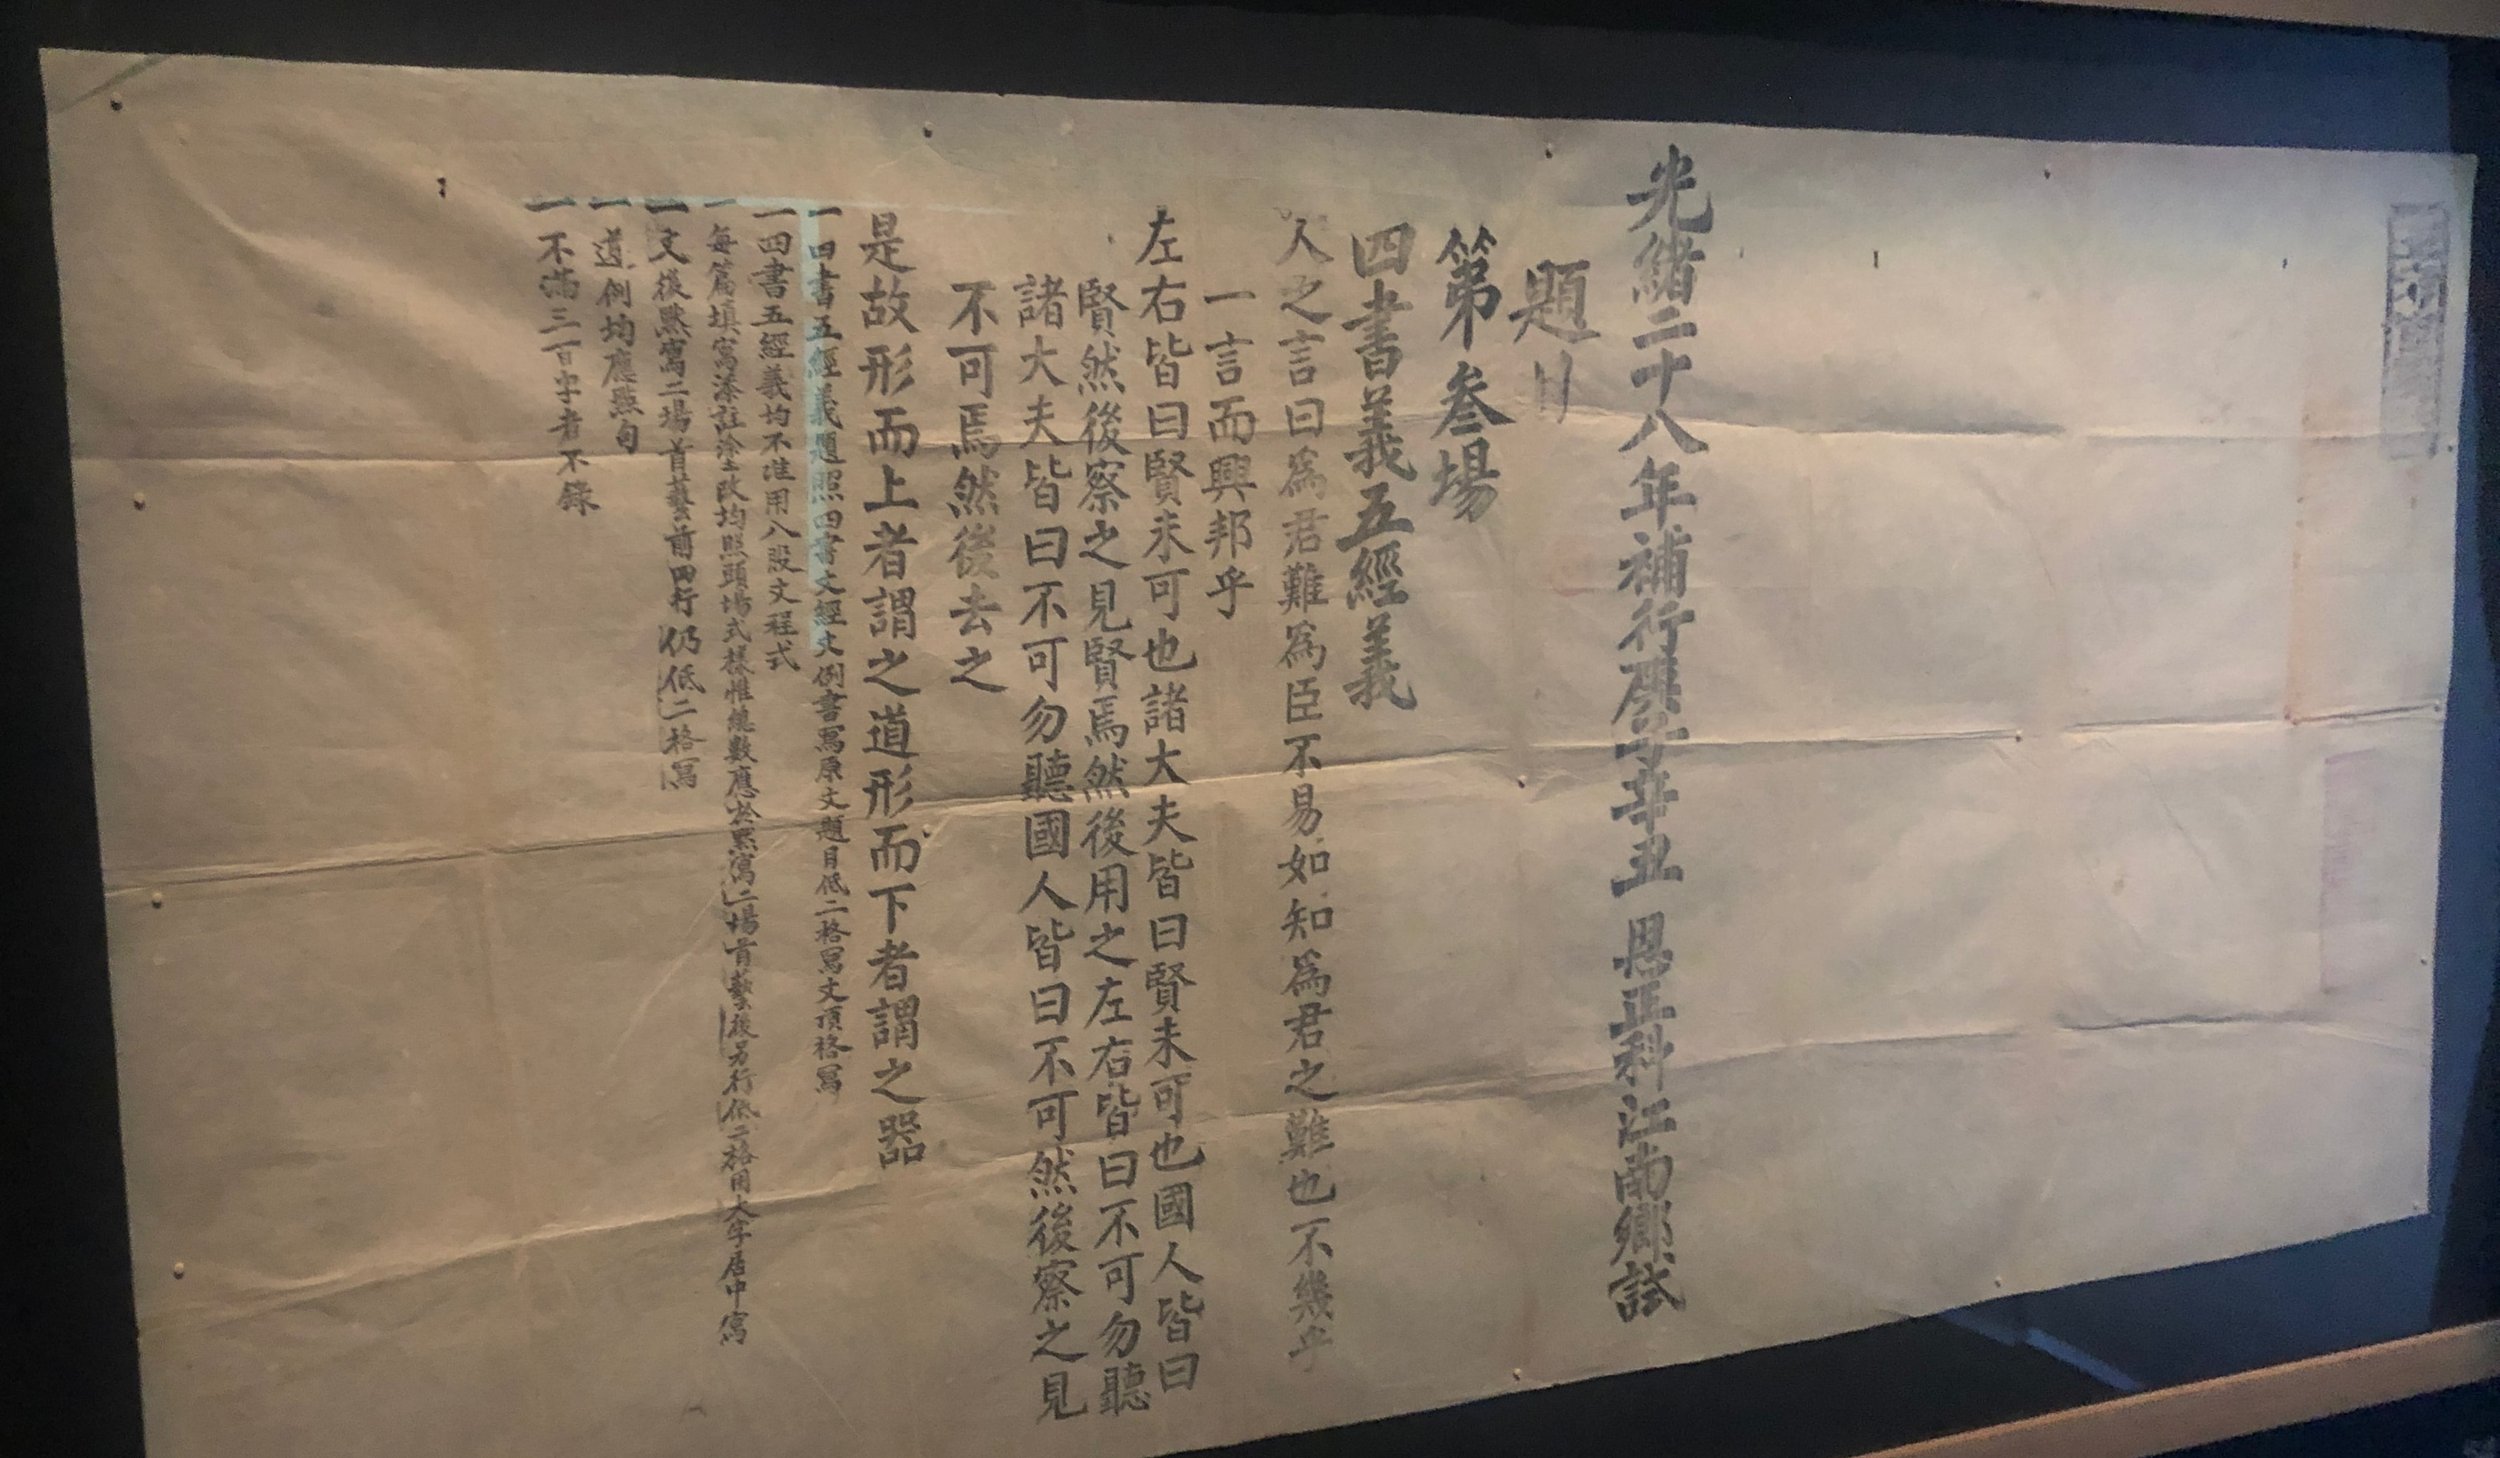 光緒二十八年補行庚子辛丑 恩正科江南鄉試
題
第叄場
四書義五經義
人之言曰爲君難爲臣不易如知爲君之難也不幾乎
一言而興邦乎
左右皆曰賢未可也諸大夫皆曰賢未可也國人皆曰
賢然後察之見賢焉然後用之左右皆曰不可勿聽
諸大夫皆曰不可勿聽國人皆曰不可然後察之見
不可焉然後去之
是故形而上者謂之道形而下者謂之器
一四書五經義題照四書文經文例書寫原文題目低二格寫文頂格寫
一四書五經義均不准用八股文程式
一每篇填寫添註塗改均照頭場式樣惟總數應於默寫二場首藝後另行低二格用大字居中寫
一文後默寫二場首藝前四行仍低二格寫
一道例均應點句
一不滿三百字者不錄